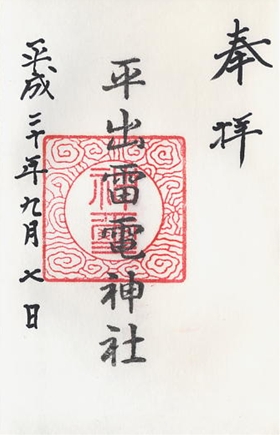 奉拝
平出雷電神社
平成二十年九月七日